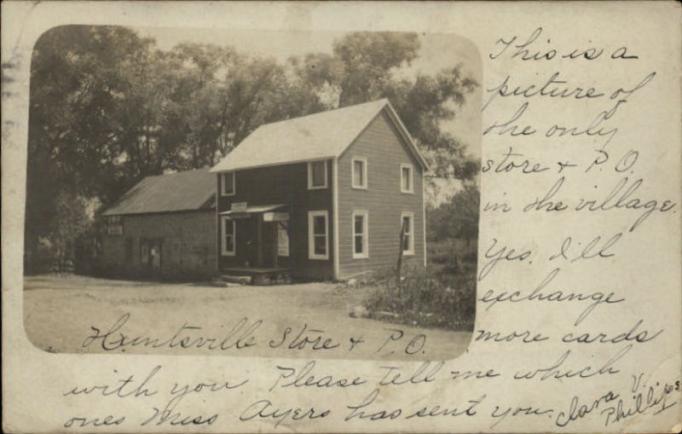 This is a
picture of
the only
store + P.O.
in the village.
Yes, I'll
exchange
more cards
with you Please tell me which
ones Miss Ayers has sent you.
Clara V.
Phillips
Huntsville Store + P.O.